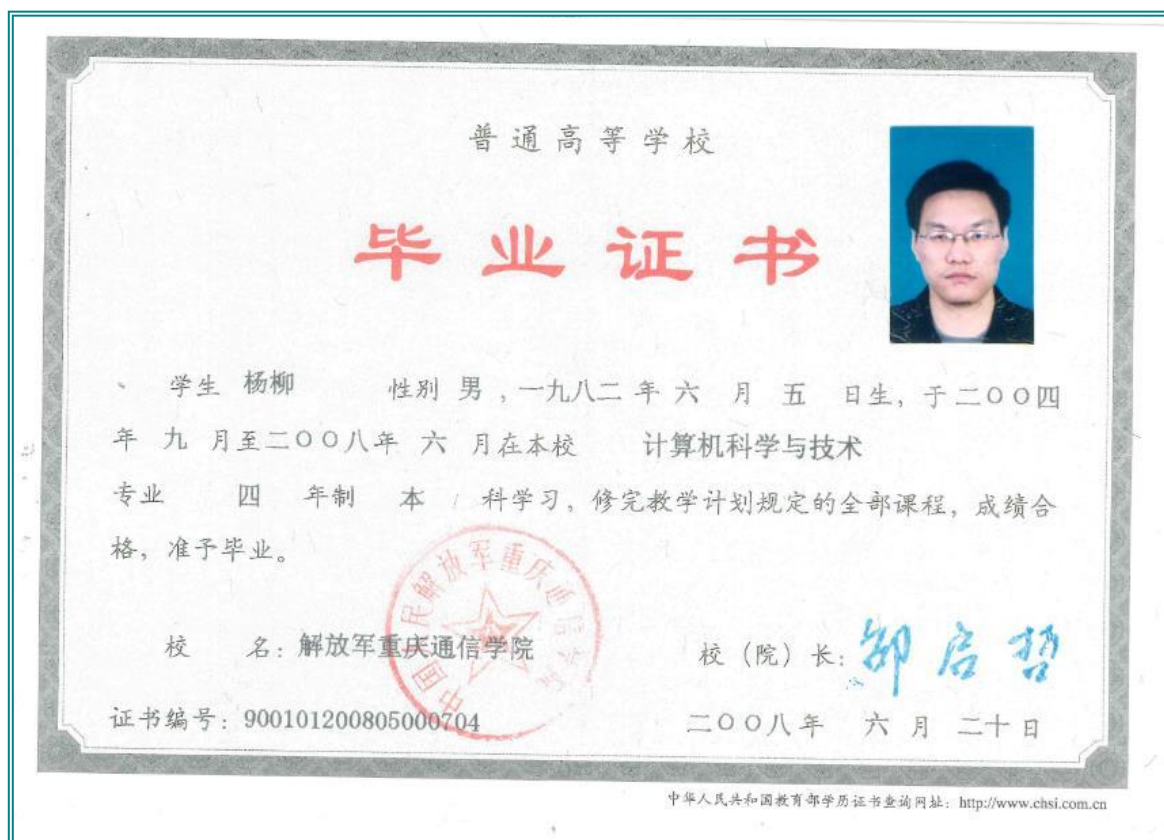 普通高等学校
毕业证书
学生 杨柳 性别 男 ,一九八二 年 六 月 五 日生，于二〇〇四
年 九 月至二〇〇八年 六 月在本校 计算机科学与技术
专业 四 年制 本 科学习，修完教学计划规定的全部课程，成绩合
格，准予毕业。
中国人民解放军重庆通信学院
校 名：解放军重庆通信学院
校（院）长：
证书编号：900101200805000704
二〇〇八年 六 月 二十日
中华人民共和国教育部学历证书查询网址：http://www.chsi.com.cn